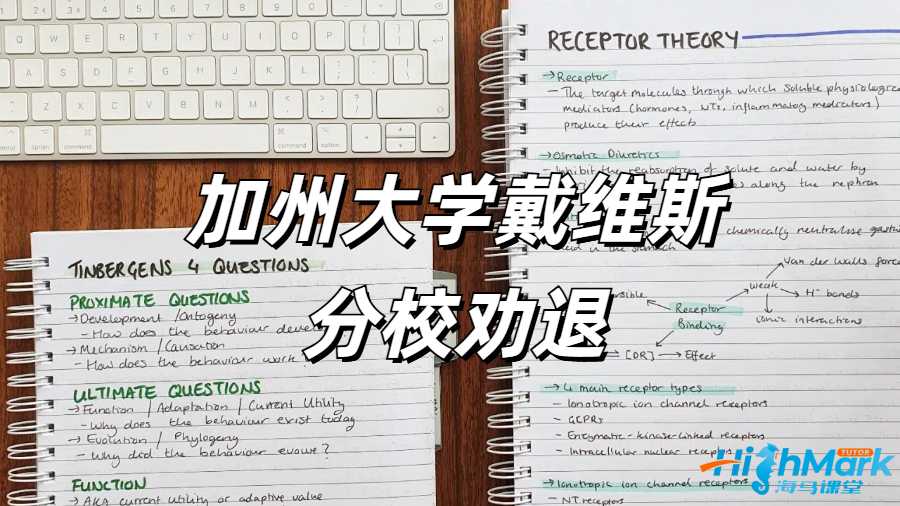 加州大学戴维斯
分校劝退
TINBERGENS 4 QUESTIONS
PROXIMATE QUESTIONS
→ Development / Ontogeny
- How does the behaviour
→ Mechanism / Causation
- How does the behaviour work
ULTIMATE QUESTIONS
→ Function / Adaptation / Current Utility
- Why does the behaviour exist today
→ Evolution / Phylogeny
- Why did the behaviour evolve?
FUNCTION
→ AKA current utility or adaptive value
RECEPTOR THEORY
→ Receptor
- The target molecules through which soluble physiological
mediators (hormones, NTs, inflammatory mediators)
produce their effects
→ Osmotic Diuretics
Inhibit the reabsorption of solute and water by
along the nephron
chemically neutralise
in the stomach
Van der Waals
weak
→ H⁻ bonds
ionic interactions
Receptor
Binding
[DR] → Effect
→ 4 main receptor types
- Ionotropic ion channel receptors
- GCPRs
- Enzymatic-kinase-linked receptors
- Intracellular nuclear receptors
→ Ionotropic ion channel receptors
- NT receptors
control
option
command
HighMark
TUTOR
海马课堂